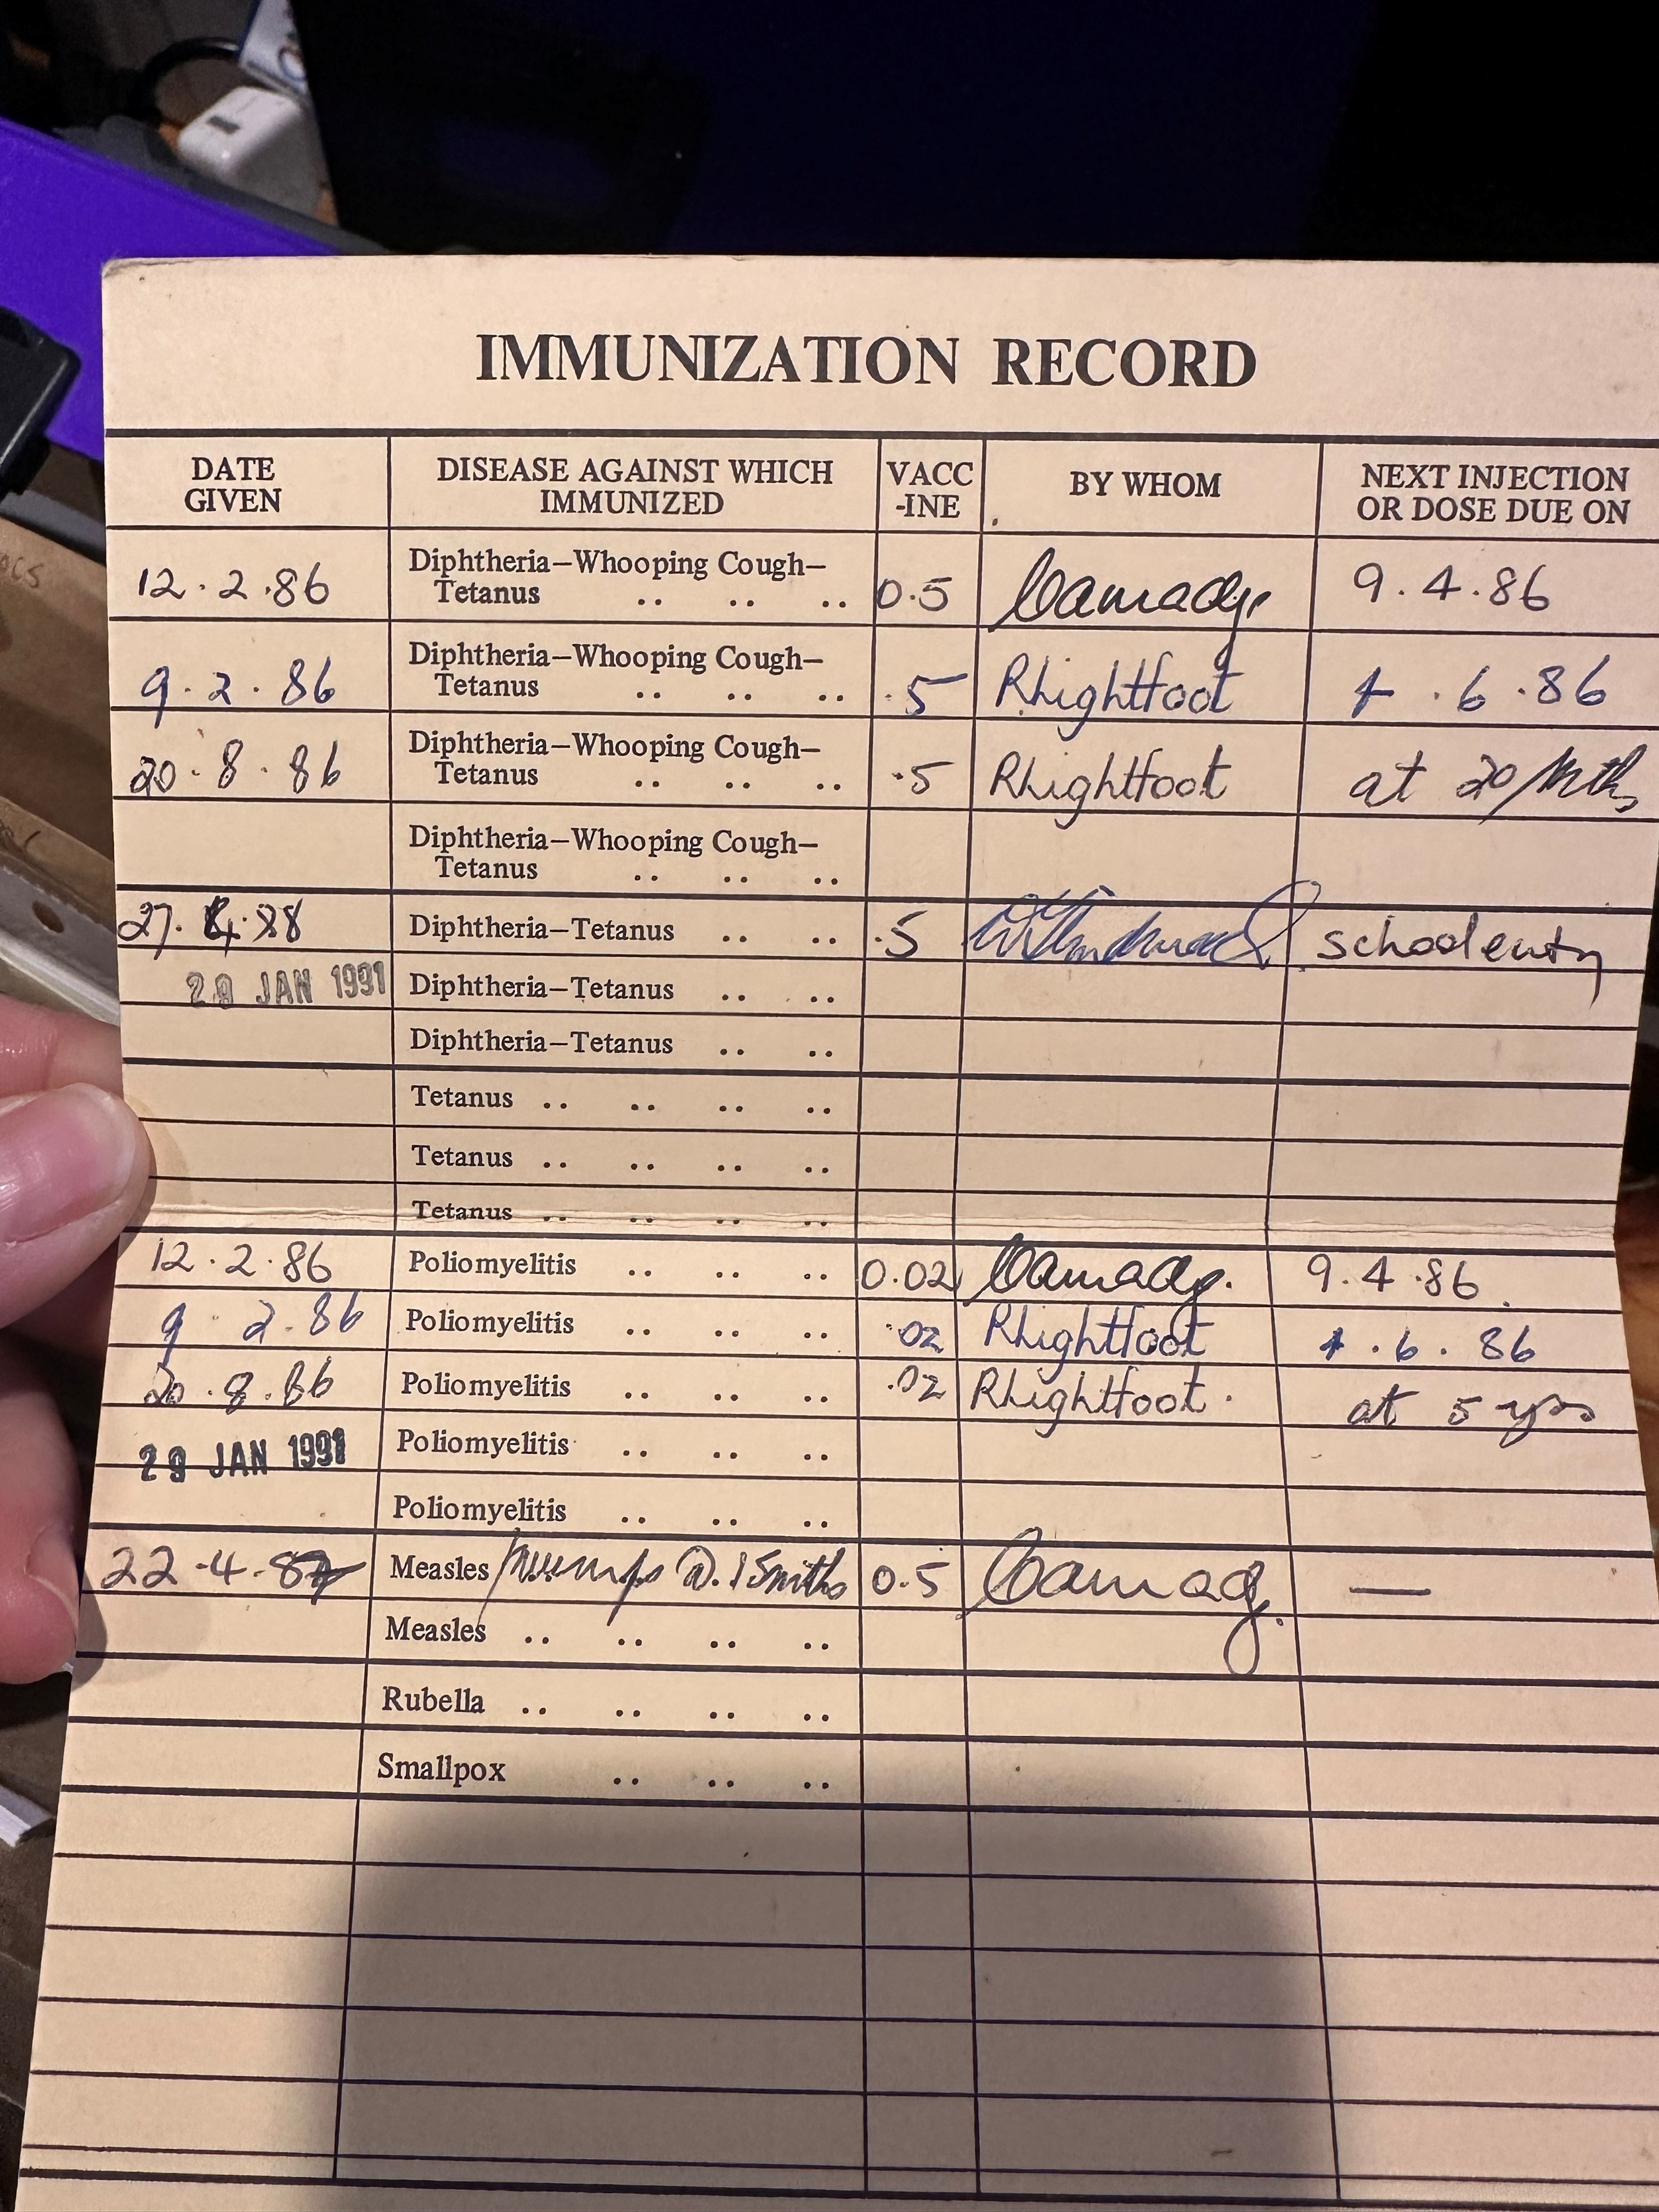 IMMUNIZATION RECORD
DATE GIVEN DISEASE AGAINST WHICH IMMUNIZED VACC-INE BY WHOM NEXT INJECTION OR DOSE DUE ON
12.2.86 Diphtheria—Whooping Cough—Tetanus .. .. .. 0.5 9.4.86
9.2.86 Diphtheria—Whooping Cough—Tetanus .. .. .. .5 RLightfoot .6.86
20.8.86 Diphtheria—Whooping Cough—Tetanus .. .. .. .5 RLightfoot at 20/mths
Diphtheria—Whooping Cough—Tetanus .. .. ..
27.4.88 Diphtheria—Tetanus .. .. .5 school entry
29 JAN 1991 Diphtheria—Tetanus .. ..
Diphtheria—Tetanus .. ..
Tetanus .. .. .. ..
Tetanus .. .. .. ..
Tetanus .. .. .. ..
12.2.86 Poliomyelitis .. .. .. 0.02 9.4.86.
9 2.86 Poliomyelitis .. .. .. .02 RLightfoot .6.86
20.8.86 Poliomyelitis .. .. .. .02 RLightfoot. at 5 yrs
29 JAN 1991 Poliomyelitis .. .. ..
Poliomyelitis .. .. ..
22.4.87 Measles/Mumps 0.5 —
Measles .. .. .. ..
Rubella .. .. .. ..
Smallpox .. .. ..